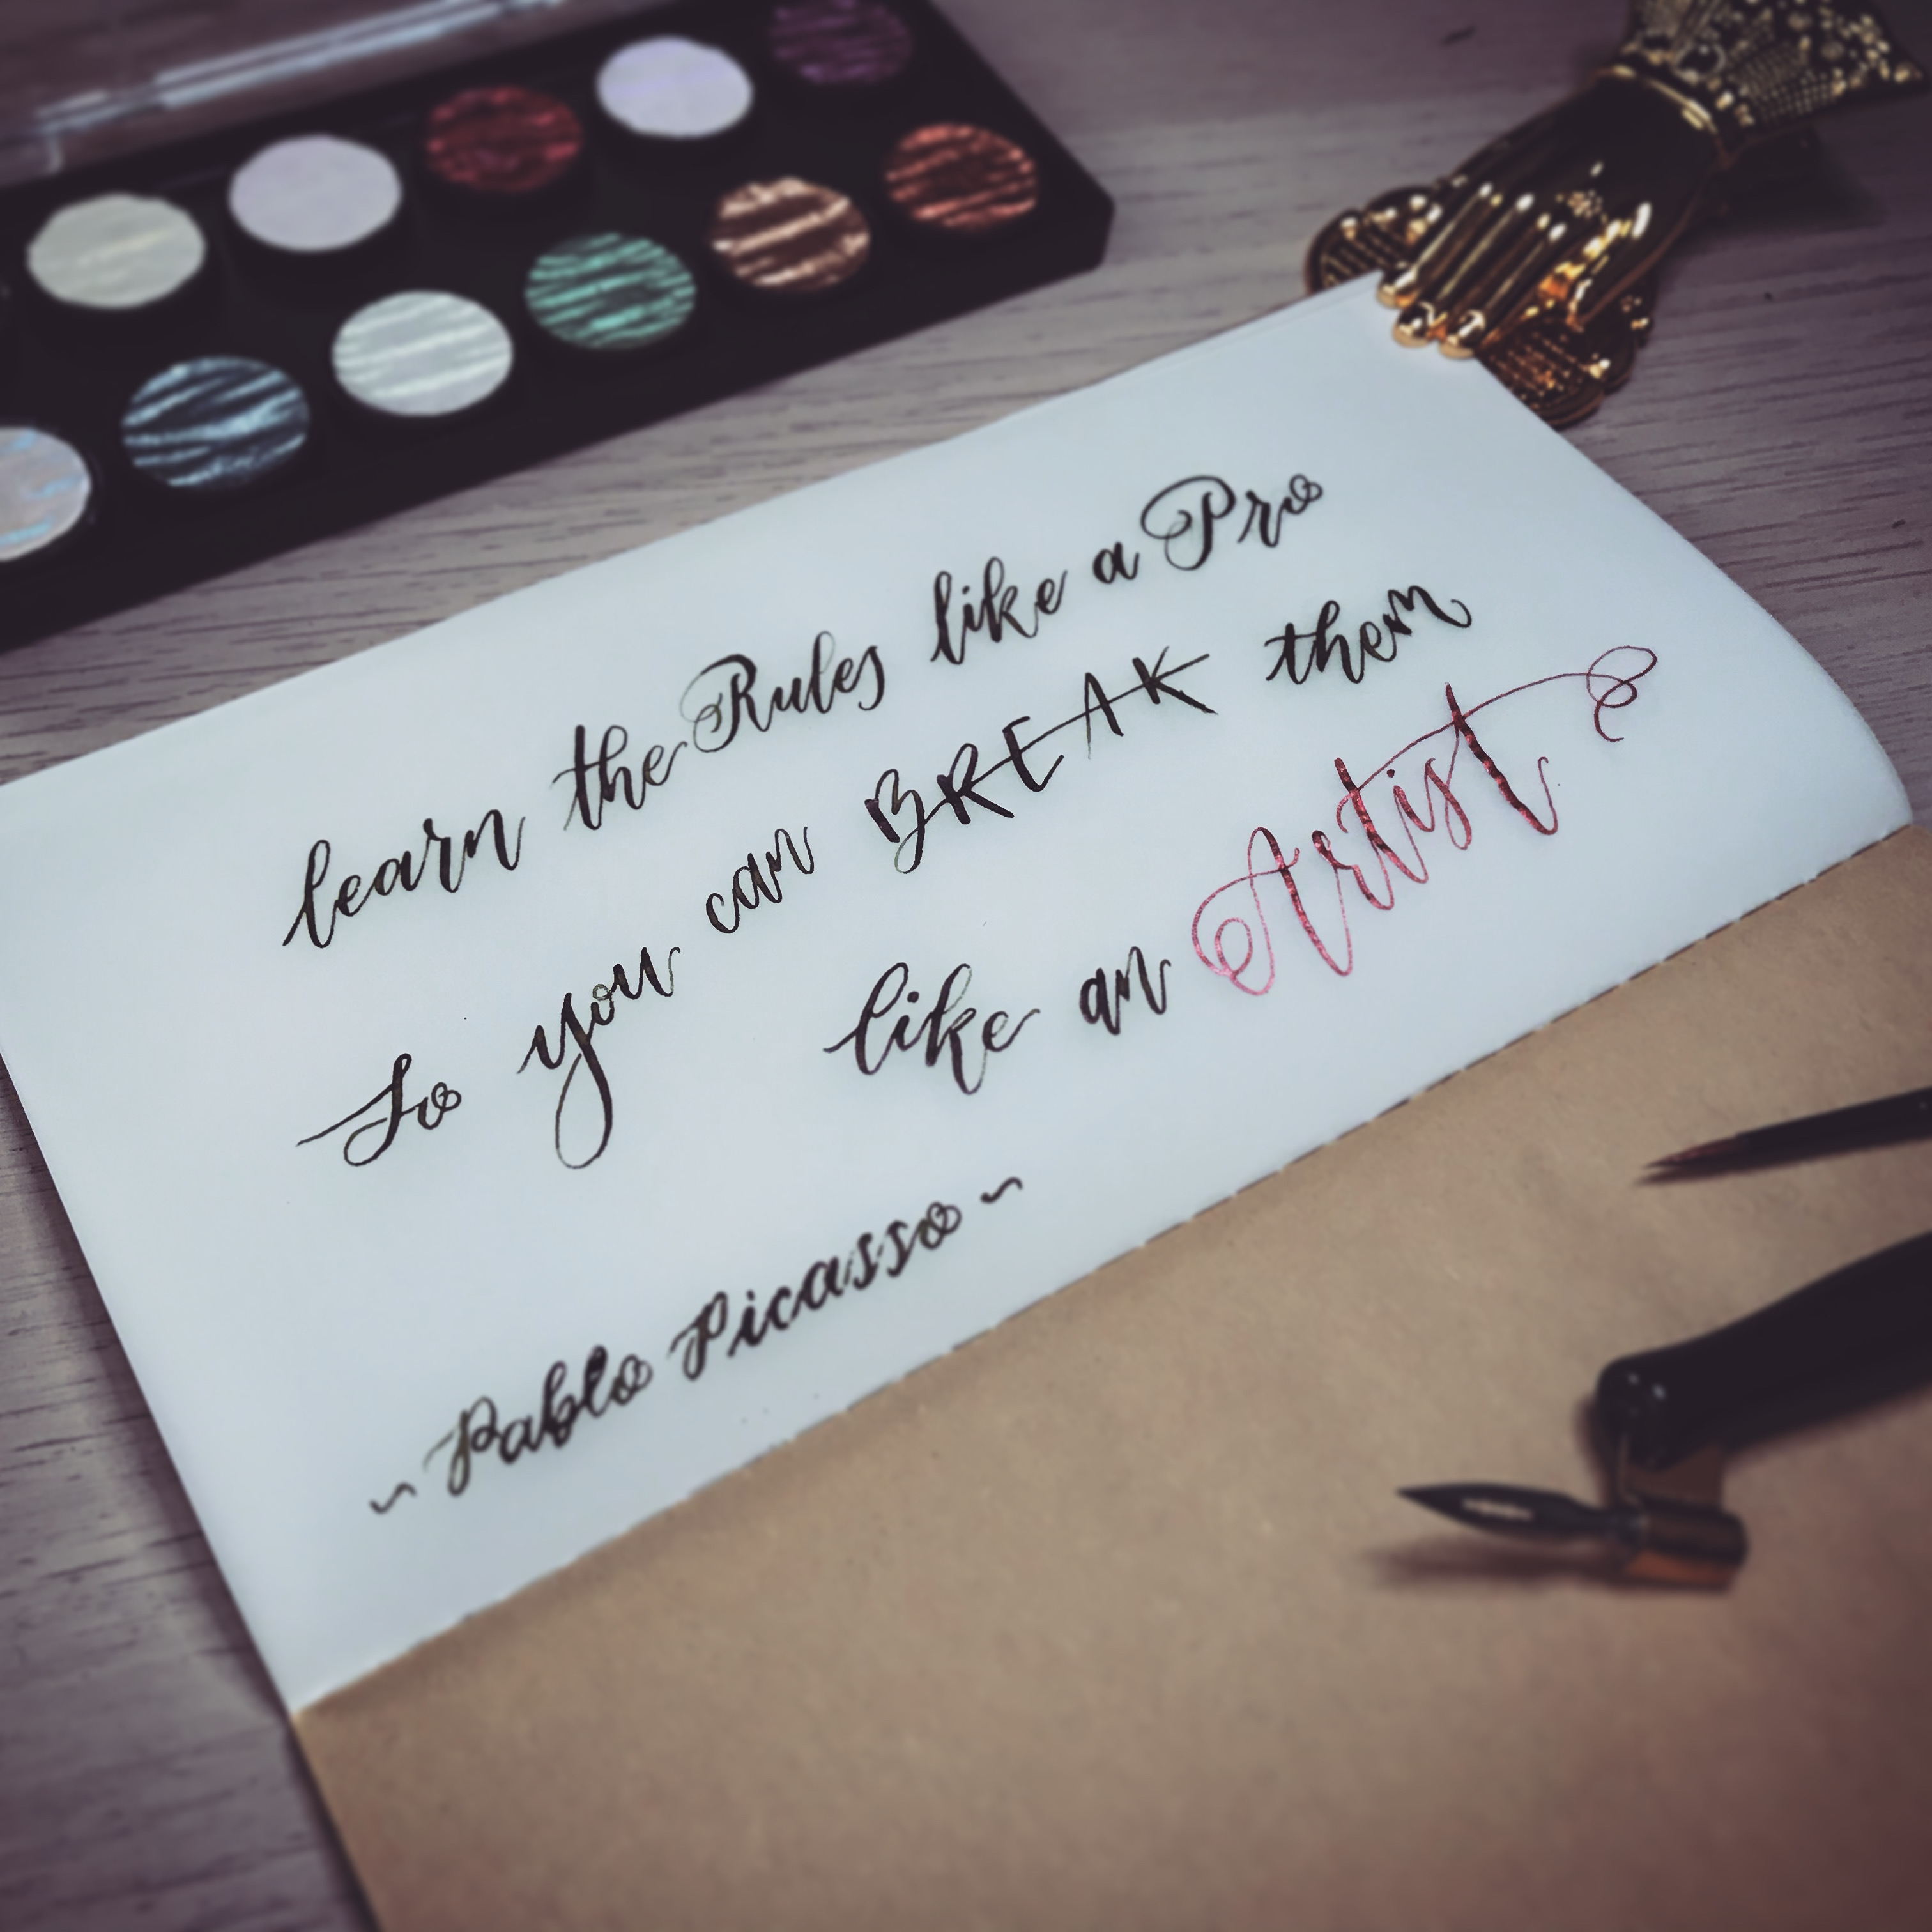 learn the Rules like a Pro
So you can BREAK them
like an Artist
~ Pablo Picasso ~